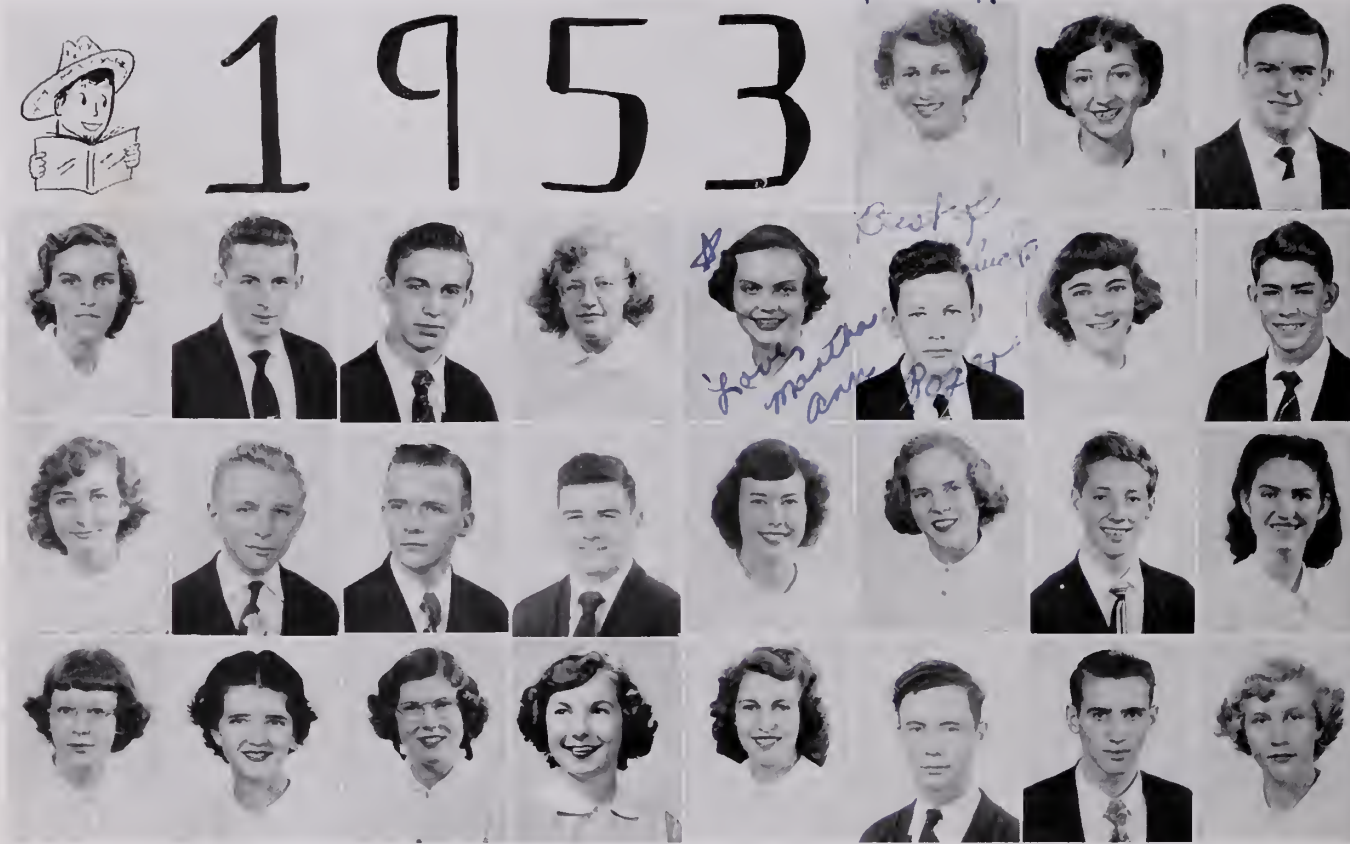 1953
Best of
luck
Love
Martha
Ann
Roger